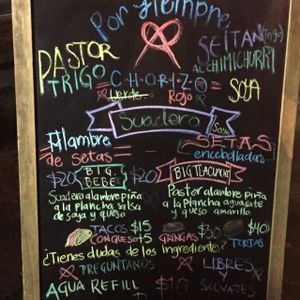 Por siempre
PASTOR TRIGO
SEITAN (Trigo) AL CHIMICHURRI
=CHORIZO= SOYA
Verde Rojo
Suadero Soya
Alambre de setas
SETAS encebolladas
$20 BIG BEBE $20
BIG TLACUACHE
Suadero alambre piña
a la plancha salsa
de soya y queso
Pastor alambre piña
a la plancha aguacate
y queso amarillo
TACOS $15 $30 $40
CON QUESO +$5 GRINGAS TORTAS
¿Tienes dudas de los ingredientes?
PREGUNTANOS LIBRES
AGUA REFILL $10 SALVAJES